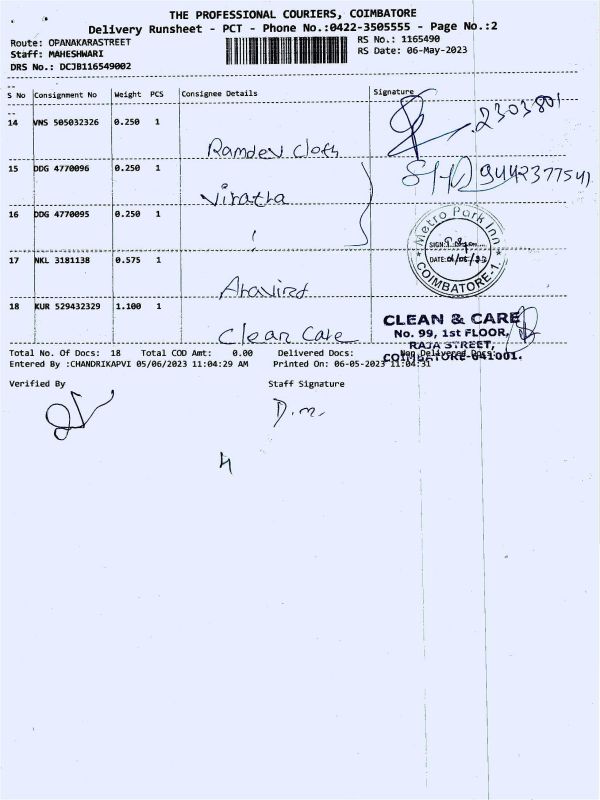 THE PROFESSIONAL COURIERS, COIMBATORE
Delivery Runsheet - PCT - Phone No.:0422-3505555 - Page No.:2
Route: OPANAKARASTREET
RS No.: 1165490
Staff: MAHESHWARI
RS Date: 06-May-2023
DRS No.: DCJB116549002
S No Consignment No Weight PCS Consignee Details Signature
14 VNS 505032326 0.250 1
Ramdev Cloth
2303801
15 DDG 4770096 0.250 1
Viratha
9442377541
16 DDG 4770095 0.250 1
Metro Park Inn
SIGN:
DATE:
COIMBATORE-1.
17 NKL 3181138 0.575 1
Aravind
18 KUR 529432329 1.100 1
Clean Care
CLEAN & CARE
No. 99, 1st FLOOR,
RAJA STREET,
COIMBATORE-641001.
Total No. Of Docs: 18 Total COD Amt: 0.00 Delivered Docs: Non Delivered Docs:
Entered By :CHANDRIKAPVI 05/06/2023 11:04:29 AM Printed On: 06-05-2023 11:04:31
Verified By Staff Signature
D.m.